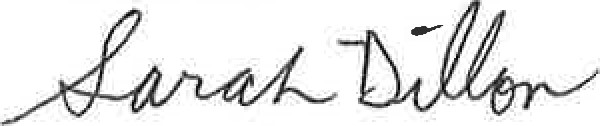 Sarah Dillon